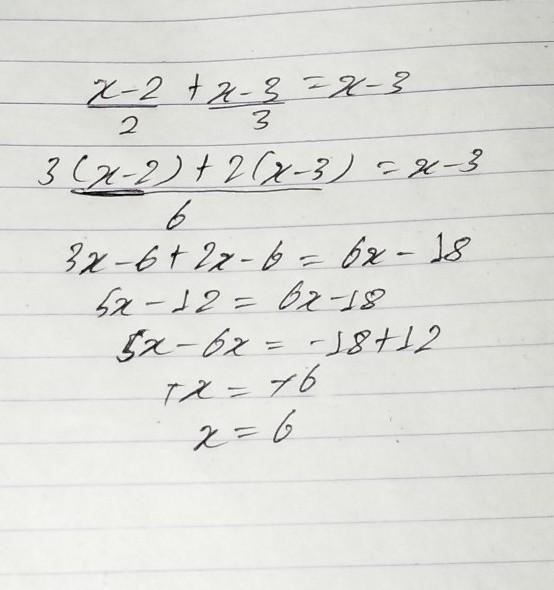 x-2/2 + x-3/3 = x-3
3(x-2) + 2(x-3)/6 = x-3
3x-6+2x-6 = 6x-18
5x-12 = 6x-18
5x-6x = -18+12
+x = +6
x = 6